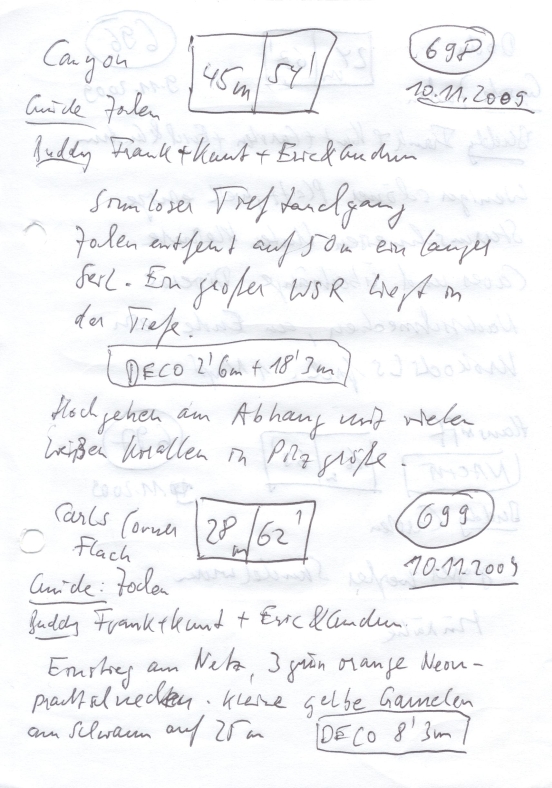 Canyon 45m 54' 698
10.11.2009
Guide Zolen
Buddy Frank + Knut + Eric & Gudrun
Sinnloser Tieftauchgang
Zolen entfernt auf 50m ein langes
Seil. Ein großer WSR liegt in
der Tiefe.
DECO 2' 6m + 18' 3m
Hochgehen am Abhang mit vielen
weißen Korallen in Pilzgröße.
Carls Corner 28m 62' 699
Flach
10.11.2009
Guide: Zolen
Buddy Frank + Knut + Eric & Gudrun.
Einstieg am Netz, 3 grün orange Neon-
prachtschnecken. Kleine gelbe Garnelen
am Schwamm auf 25m DECO 8' 3m